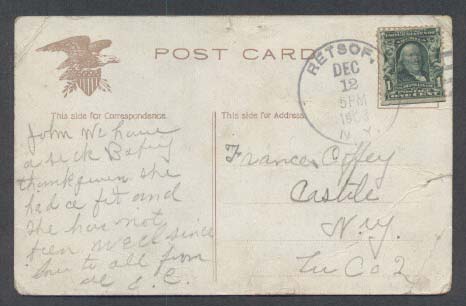 POST CARD
RETSOF,
DEC
12
5PM
N.Y.
1
This side for Correspondence.
This side for Address.
John we have
a sick Baby
thanksgiven she
had a fit and
she has not
been well since
love to all from
C.C.
Frances Coffey
Castile
N.Y.
Co 2